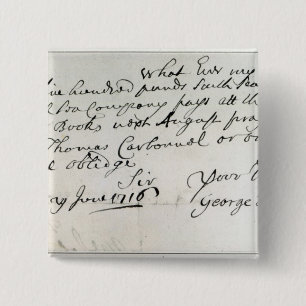 What Ever my
five hundred pounds South Sea
Sea Company pays att th
Books next August pra
Thomas Carbonnel or
oblidge
Sir
June 1716 Your
George